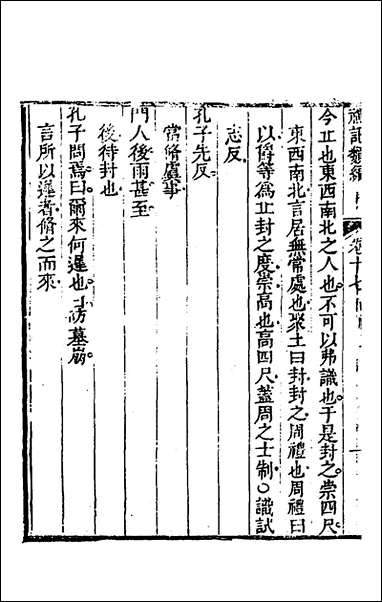 禮記類編 卷十七
今丘也東西南北之人也不可以弗識也于是封之崇四尺
東西南北言居無常處也聚土曰封封之周禮也周禮曰
以爵等為丘封之度崇高也高四尺蓋周之士制〇識試
志反
孔子先反
當脩虞事
門人後雨甚至
後待封也
孔子問焉曰爾來何遲也曰防墓崩
言所以遲者脩之而來